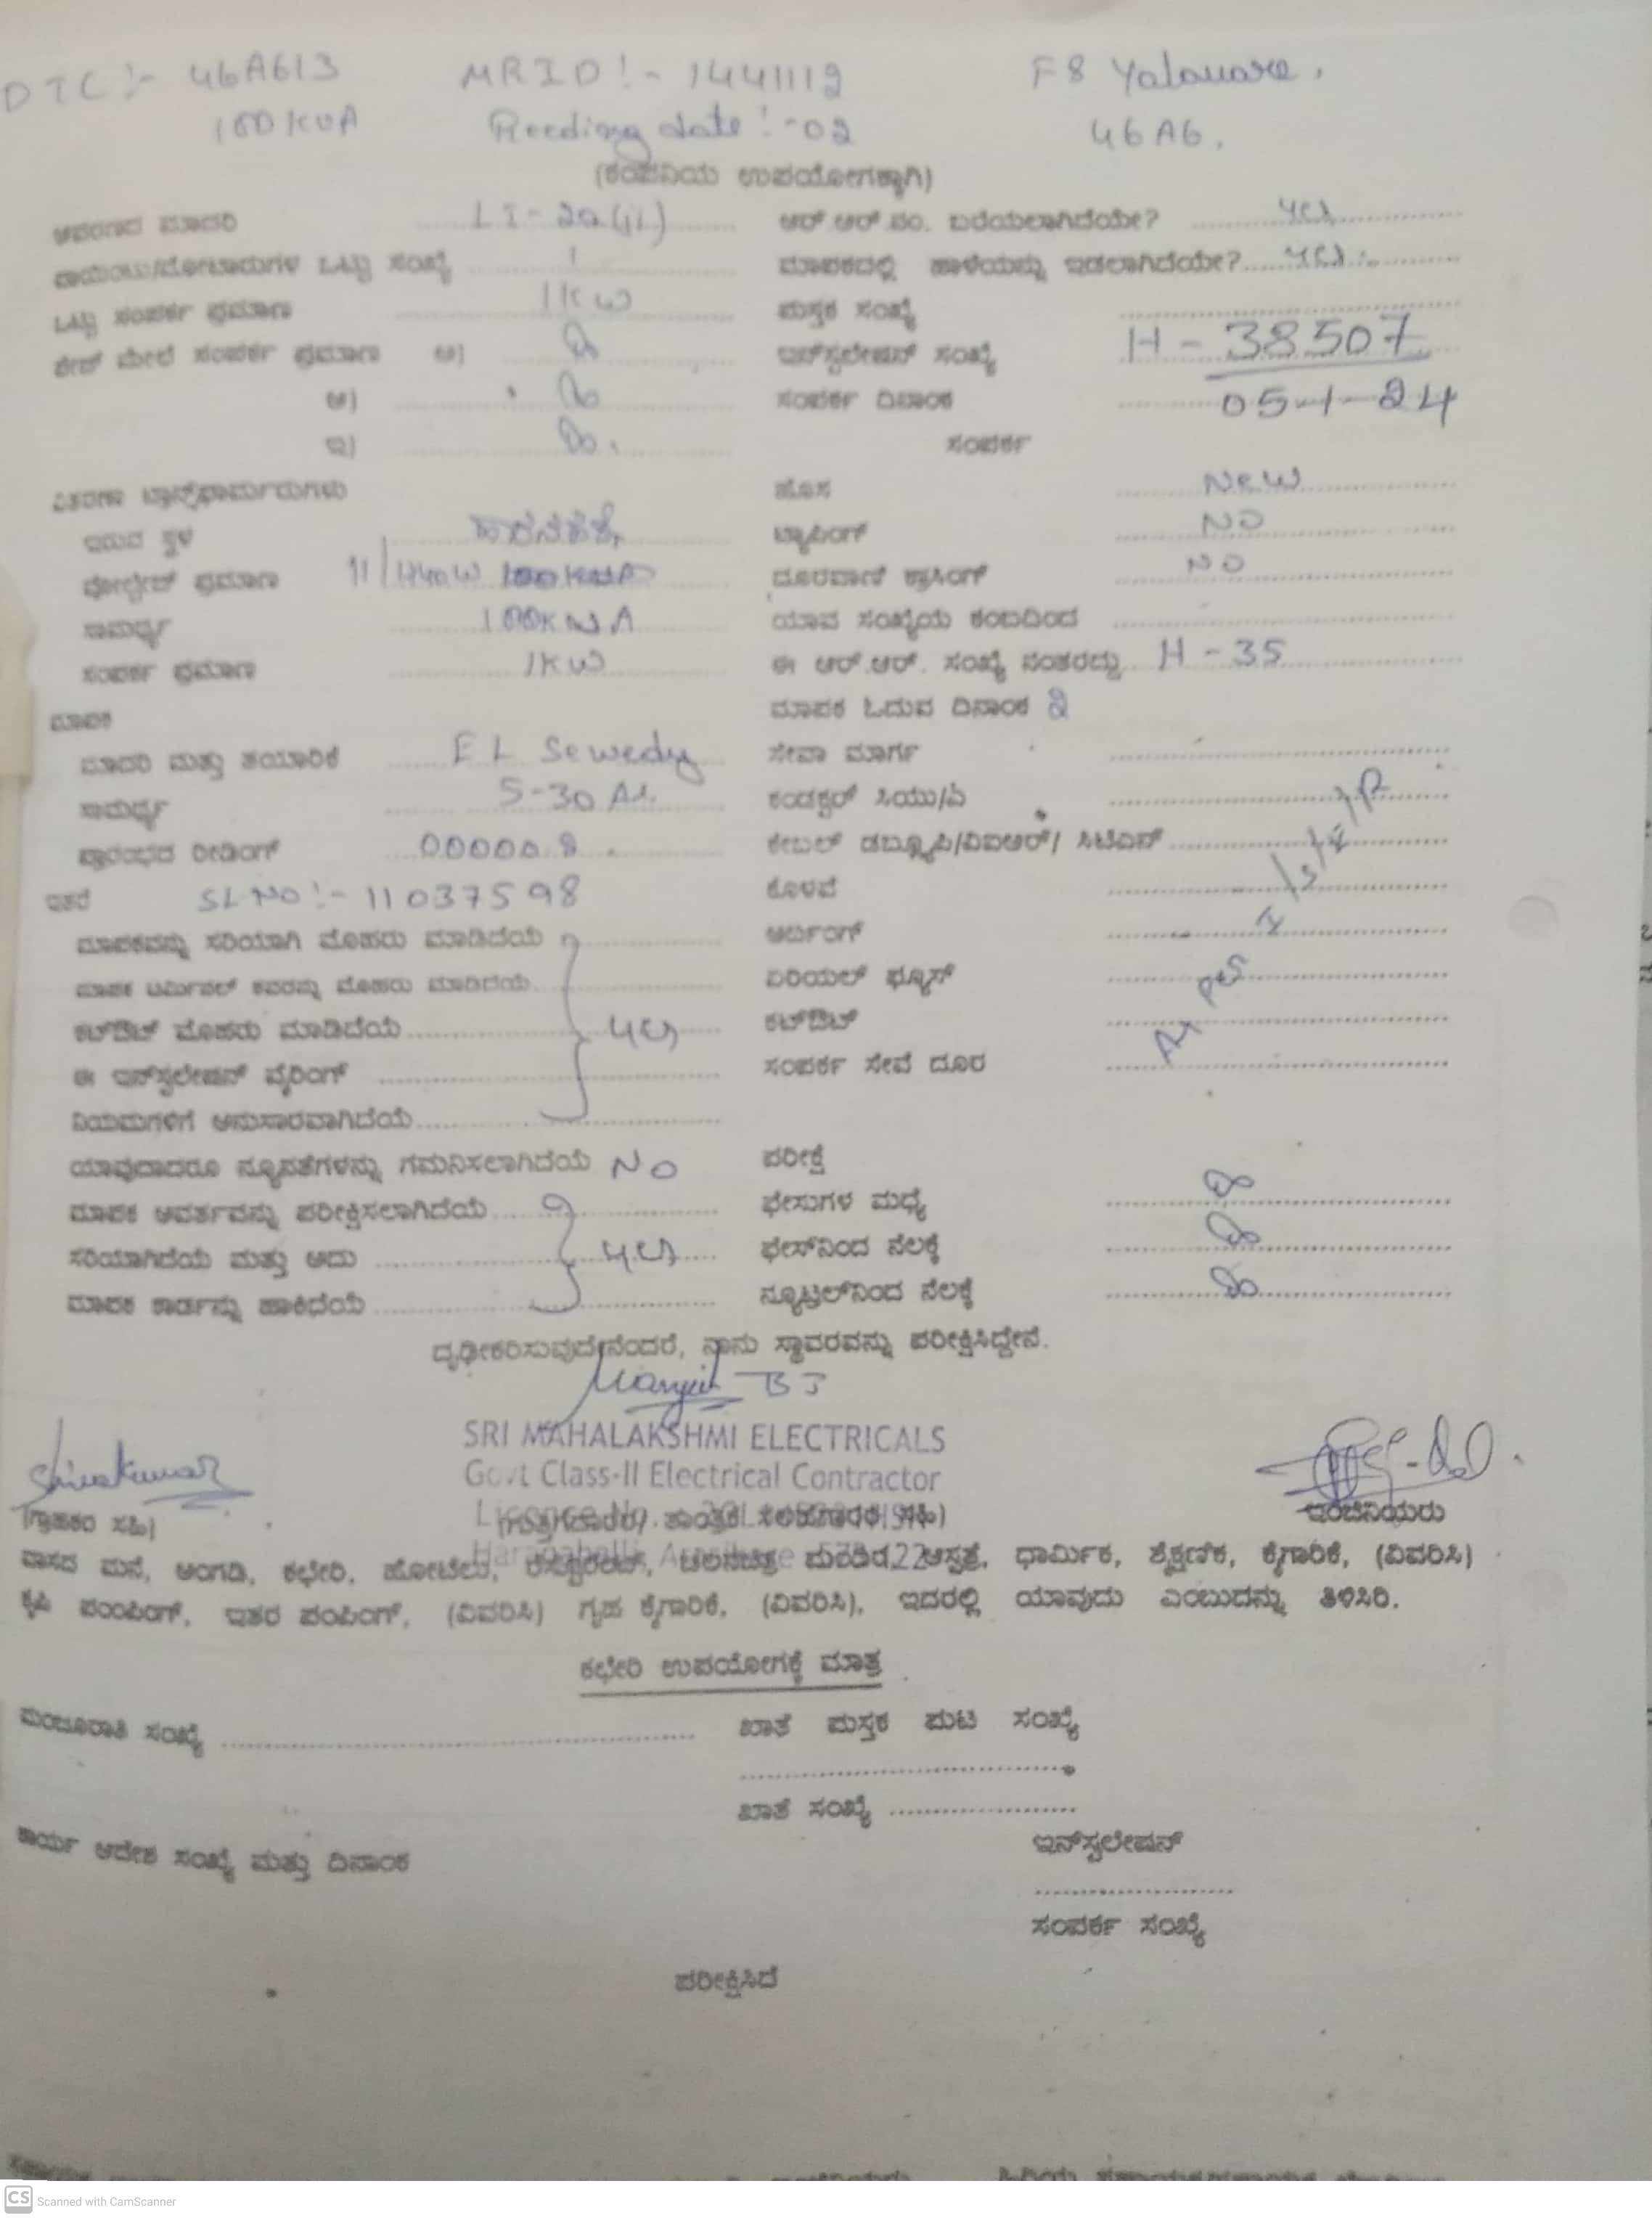 DTC :- 46A613 MRID :- 1441112 F8 Yalavare.
100 KVA Reeding date :- 02 46A6.
(ಕಂಪನಿಯ ಉಪಯೋಗಕ್ಕಾಗಿ)
ಆವರಣದ ಮಾದರಿ LT-2a(ii) ಆರ್.ಆರ್.ನಂ. ಬರೆಯಲಾಗಿದೆಯೇ? yes
ಒಟ್ಟು ಸಂಖ್ಯೆ 1 ಮಾಪಕದಲ್ಲಿ ಹಾಳೆಯನ್ನು ಇಡಲಾಗಿದೆಯೇ? yes
ಒಟ್ಟು ಸಂಪರ್ಕ ಪ್ರಮಾಣ 1KW ಪುಸ್ತಕ ಸಂಖ್ಯೆ
ಫೇಜ್ ಮೇಲೆ ಸಂಪರ್ಕ ಪ್ರಮಾಣ ಅ) ಇನ್‌ಸ್ಟಲೇಷನ್ ಸಂಖ್ಯೆ H-38507
ಆ) ಸಂಪರ್ಕ ದಿನಾಂಕ 05-1-24
ಇ) ಸಂಪರ್ಕ
ವಿತರಣಾ ಟ್ರಾನ್ಸ್‌ಫಾರ್ಮರುಗಳು ಹೊಸ New
ಇರುವ ಸ್ಥಳ ಟ್ಯಾಪಿಂಗ್ NO
ವೋಲ್ಟೇಜ್ ಪ್ರಮಾಣ ದೂರವಾಣಿ ಕ್ರಾಸಿಂಗ್ NO
ಸಾಮರ್ಥ್ಯ 100KVA ಯಾವ ಸಂಖ್ಯೆಯ ಕಂಬದಿಂದ
ಸಂಪರ್ಕ ಪ್ರಮಾಣ 1KW ಈ ಆರ್.ಆರ್. ಸಂಖ್ಯೆ ನಂತರದ್ದು H-35
ಮಾಪಕ ಮಾಪಕ ಓದುವ ದಿನಾಂಕ 2
ಮಾದರಿ ಮತ್ತು ತಯಾರಿಕೆ EL Sewedy ಸೇವಾ ಮಾರ್ಗ
ಸಾಮರ್ಥ್ಯ 5-30 A. ಕಂಡಕ್ಟರ್ ಸಿಯು/ಏ
ಪ್ರಾರಂಭದ ರೀಡಿಂಗ್ 00000.8 ಕೇಬಲ್ ಡಬ್ಲ್ಯೂಪಿ/ವಿಐಆರ್/ ಸಿಟಿಎಸ್
ಇತರೆ SL NO :- 11037598 ಕೊಳವೆ
ಮಾಪಕವನ್ನು ಸರಿಯಾಗಿ ಮೊಹರು ಮಾಡಿದೆಯೆ ಅರ್ಥಿಂಗ್
ಮಾಪಕ ಟರ್ಮಿನಲ್ ಕವರನ್ನು ಮೊಹರು ಮಾಡಿದೆಯೆ ಏರಿಯಲ್ ಫ್ಯೂಸ್
ಕಟ್‌ಔಟ್ ಮೊಹರು ಮಾಡಿದೆಯೆ yes ಕಟ್‌ಔಟ್
ಈ ಇನ್‌ಸ್ಟಲೇಷನ್ ವೈರಿಂಗ್ ಸಂಪರ್ಕ ಸೇವೆ ದೂರ
ನಿಯಮಗಳಿಗೆ ಅನುಸಾರವಾಗಿದೆಯೆ
ಯಾವುದಾದರೂ ನ್ಯೂನತೆಗಳನ್ನು ಗಮನಿಸಲಾಗಿದೆಯೆ NO ಪರೀಕ್ಷೆ
ಮಾಪಕ ಆವರ್ತವನ್ನು ಪರೀಕ್ಷಿಸಲಾಗಿದೆಯೆ ಫೇಸುಗಳ ಮಧ್ಯೆ
ಸರಿಯಾಗಿದೆಯೆ ಮತ್ತು ಅದು yes ಫೇಸ್‌ನಿಂದ ನೆಲಕ್ಕೆ
ಮಾಪಕ ಕಾರ್ಡನ್ನು ಹಾಕಿದೆಯೆ ನ್ಯೂಟ್ರಲ್‌ನಿಂದ ನೆಲಕ್ಕೆ
ದೃಢೀಕರಿಸುವುದೇನೆಂದರೆ, ನಾನು ಸ್ಥಾವರವನ್ನು ಪರೀಕ್ಷಿಸಿದ್ದೇನೆ.
SRI MAHALAKSHMI ELECTRICALS
Shivakumar Govt Class-II Electrical Contractor
(ಗ್ರಾಹಕರ ಸಹಿ) ಇಂಜಿನಿಯರು
ವಾಸದ ಮನೆ, ಅಂಗಡಿ, ಕಛೇರಿ, ಹೋಟೆಲು, ಆಸ್ಪತ್ರೆ, ಧಾರ್ಮಿಕ, ಶೈಕ್ಷಣಿಕ, ಕೈಗಾರಿಕೆ, (ವಿವರಿಸಿ)
ಕೃಷಿ ಪಂಪಿಂಗ್, ಇತರ ಪಂಪಿಂಗ್, (ವಿವರಿಸಿ) ಗೃಹ ಕೈಗಾರಿಕೆ, (ವಿವರಿಸಿ), ಇದರಲ್ಲಿ ಯಾವುದು ಎಂಬುದನ್ನು ತಿಳಿಸಿರಿ.
ಕಛೇರಿ ಉಪಯೋಗಕ್ಕೆ ಮಾತ್ರ
ಮಂಜೂರಾತಿ ಸಂಖ್ಯೆ ಖಾತೆ ಪುಸ್ತಕ ಪುಟ ಸಂಖ್ಯೆ
ಖಾತೆ ಸಂಖ್ಯೆ
ಕಾರ್ಯ ಆದೇಶ ಸಂಖ್ಯೆ ಮತ್ತು ದಿನಾಂಕ ಇನ್‌ಸ್ಟಲೇಷನ್
ಸಂಪರ್ಕ ಸಂಖ್ಯೆ
ಪರೀಕ್ಷಿಸಿದೆ
CS Scanned with CamScanner